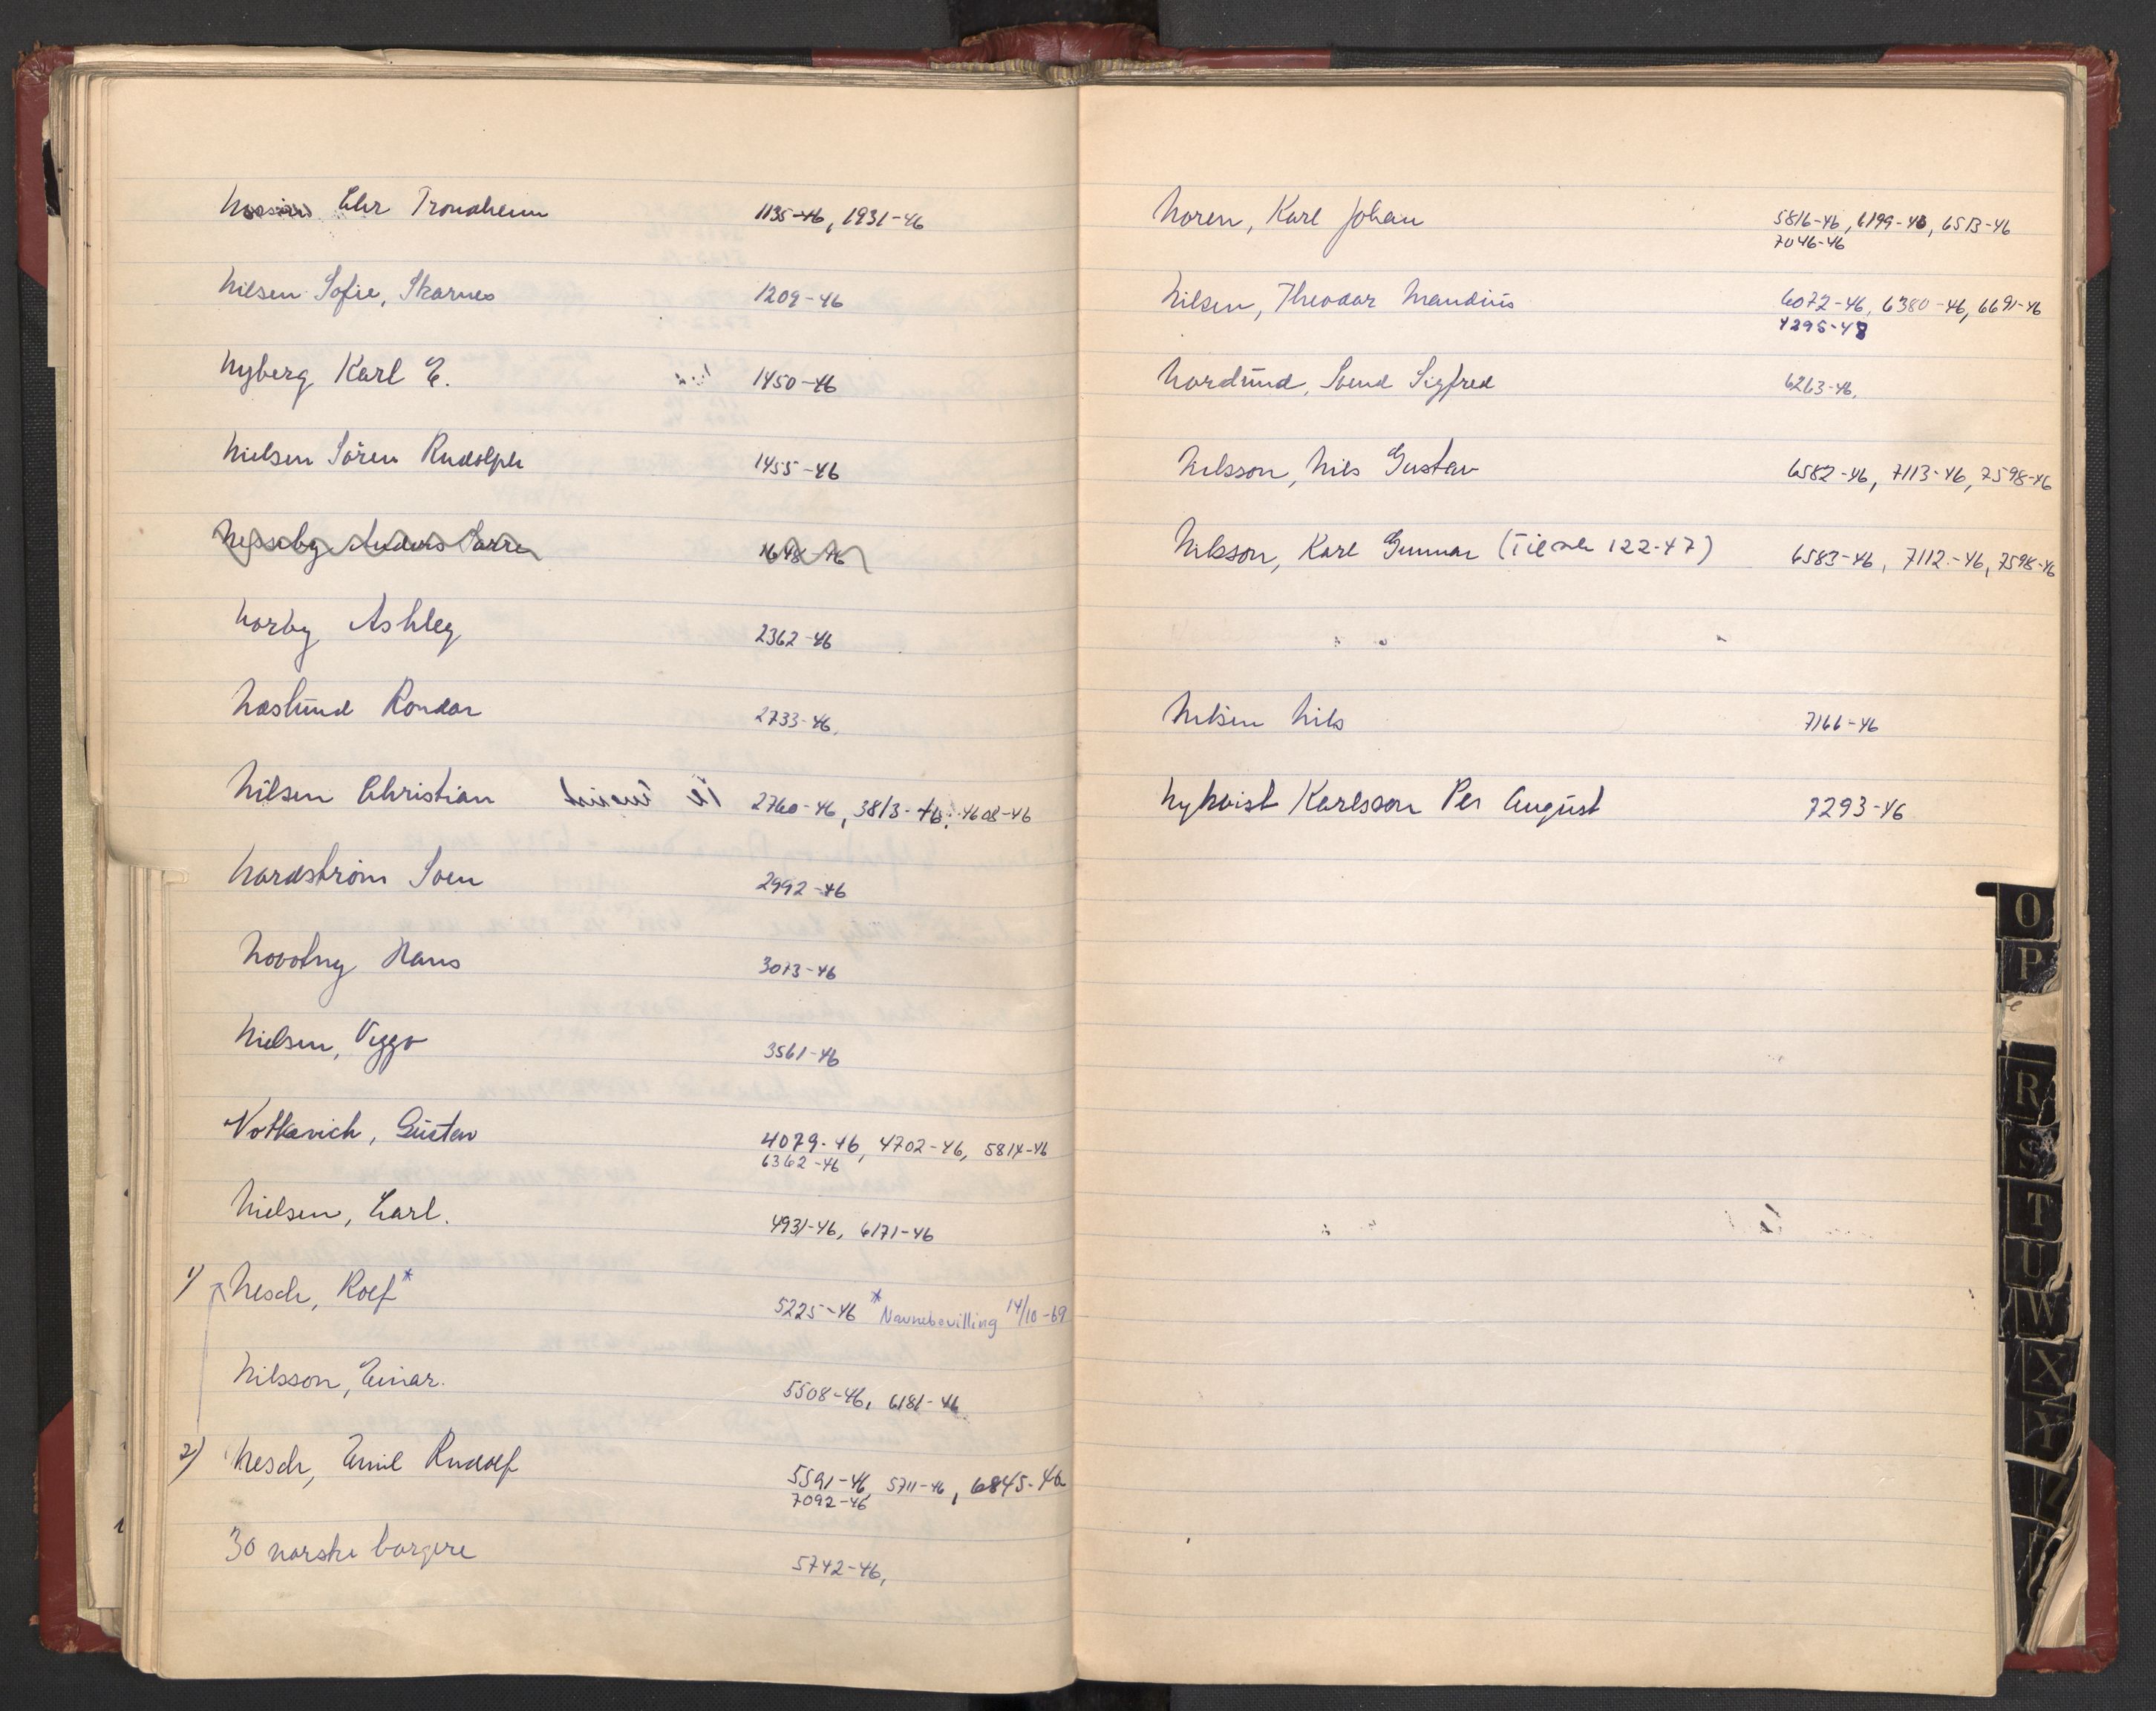 Chr Trondheim 1135-46, 1931-46
Nilsen Sofie, Skarnes 1209-46
Nyberg Karl E. 1450-46
Nielsen Sören Rudolph 1455-46
Anders 1648-46
Norby Ashley 2362-46
Næslund Rondar 2733-46,
Nilsen Christian 2760-46, 3813-46, 4608-46
Nordström Sven 2992-46
Novotny Hans 3013-46
Nielsen, Viggo 3561-46
Notkevich, Gustav 4079-46, 4702-46, 5814-46
6362-46
Nielsen, Carl. 4931-46, 6171-46
1) Nesch, Rolf* 5225-46 * Navnebevilling 14/10-69
Nilsson, Einar. 5508-46, 6181-46
2) Nesch, Emil Rudolf 5591-46, 5711-46, 6845-46
7092-46
30 norske borgere 5742-46,
Noren, Karl Johan 5816-46, 6199-46, 6513-46
7046-46
Nilsen, Theodor Mandius 6072-46, 6380-46, 6691-46
4295-48
Nordlund, Svend Sigfred 6263-46,
Nilsson, Nils Gustav 6582-46, 7113-46, 7598-46
Nilsson, Karl Gunnar (Til 122-47) 6583-46, 7112-46, 7598-46
Nilsen Nils 7166-46
Nykvist Karlsson Per August 7293-46
O
P
R
S
T
U
W
X
Y
Z